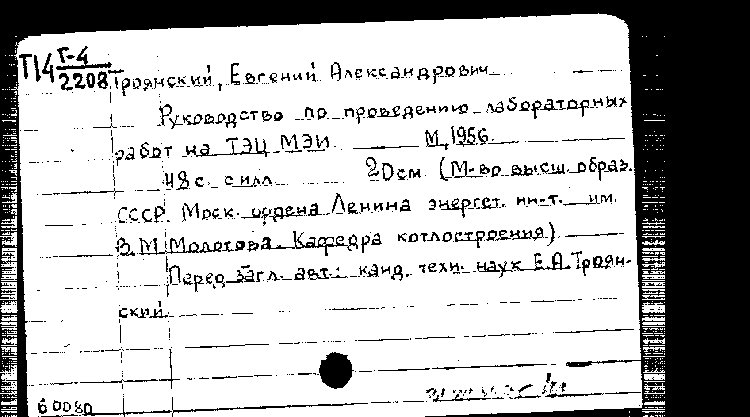 П14 Г-4
2208
Троянский, Евгений Александрович
Руководство по проведению лабораторных
работ на ТЭЦ МЭИ. М., 1956.
48 с. с илл. 20 см. (М-во высш. образ.
СССР. Моск. ордена Ленина энергет. ин-т. им.
В. М. Молотова. Кафедра котлостроения)
Перед загл. авт.: канд. техн. наук Е.А. Троян-
ский.